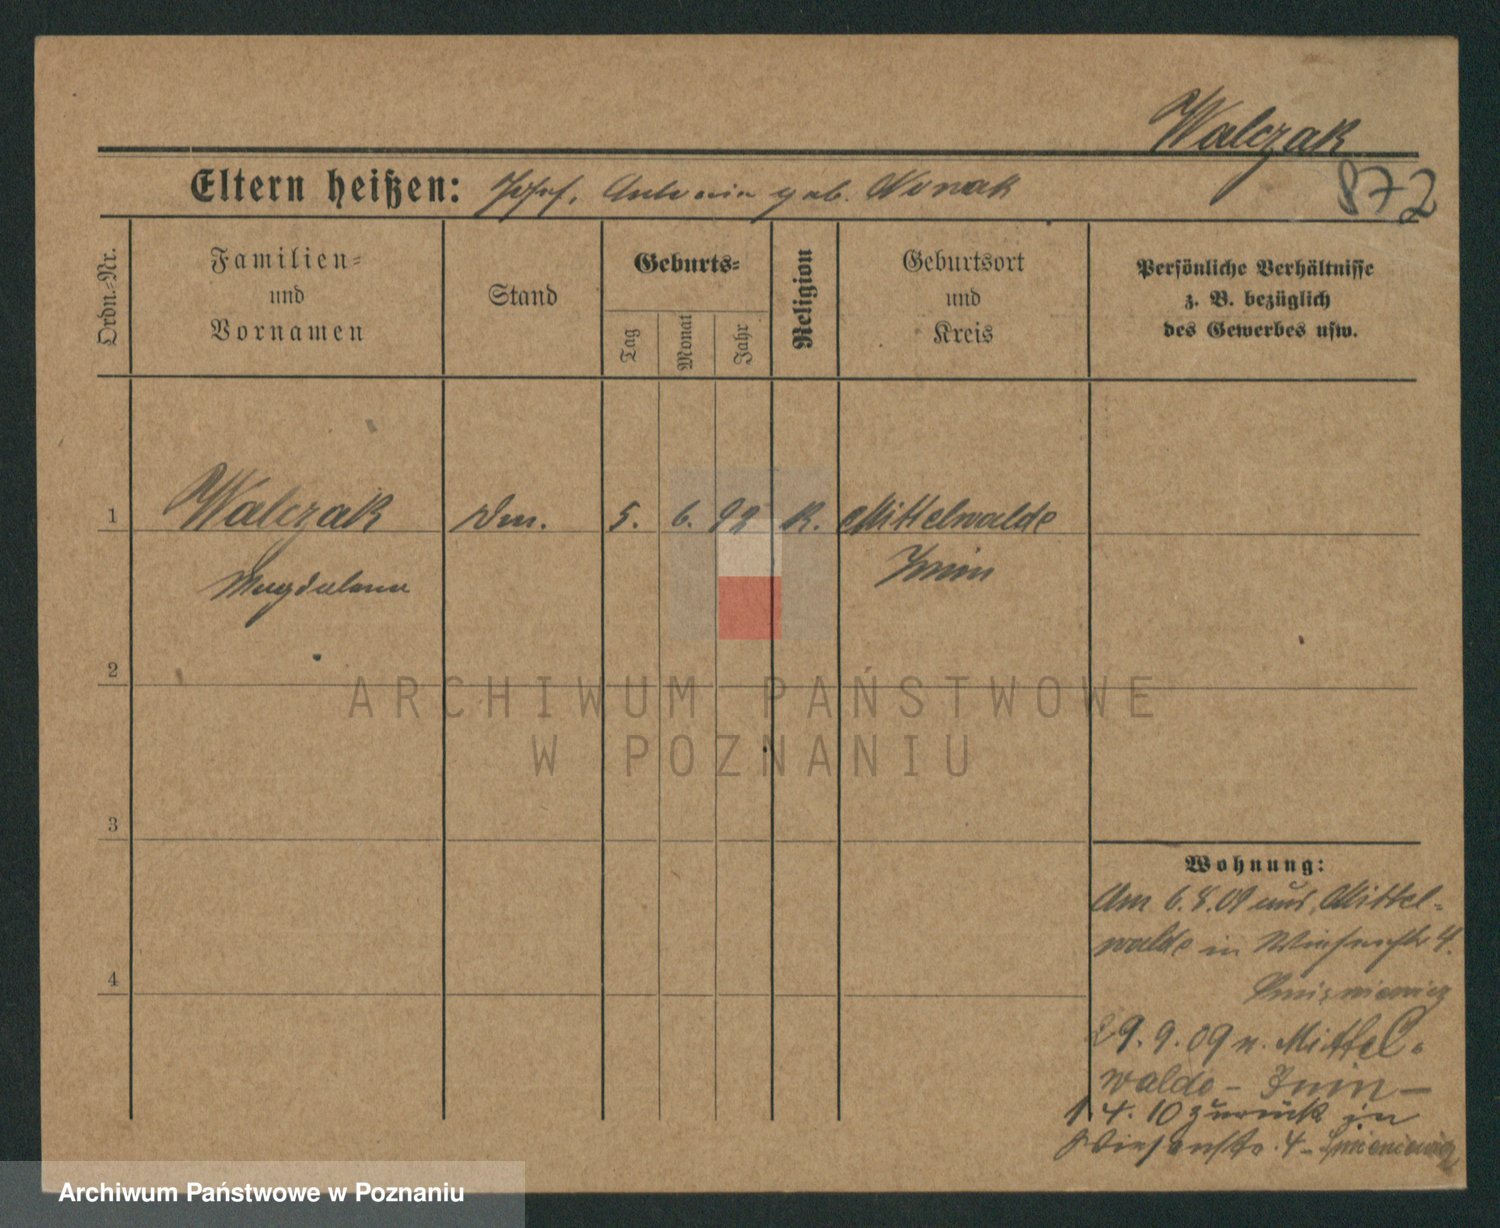 Walczak
872
Eltern heißen: Josef, Antonia geb. Nowak
Ordn.-Nr.
Familien-
und
Vornamen
Stand
Geburts-
Tag
Monat
Jahr
Religion
Geburtsort
und
Kreis
Persönliche Verhältnisse
z. B. bezüglich
des Gewerbes usw.
1
Walczak
Magdalena
5.
6.
92
K.
Mittelwalde
Znin
2
3
4
Wohnung:
Am 6.8.09 aus Mittel-
walde in Wiesenstr. 4.
29.9.09 n. Mittel-
walde - Znin -
1.4.10 zurück in
Wiesenstr. 4-
ARCHIWUM PAŃSTWOWE
W POZNANIU
Archiwum Państwowe w Poznaniu